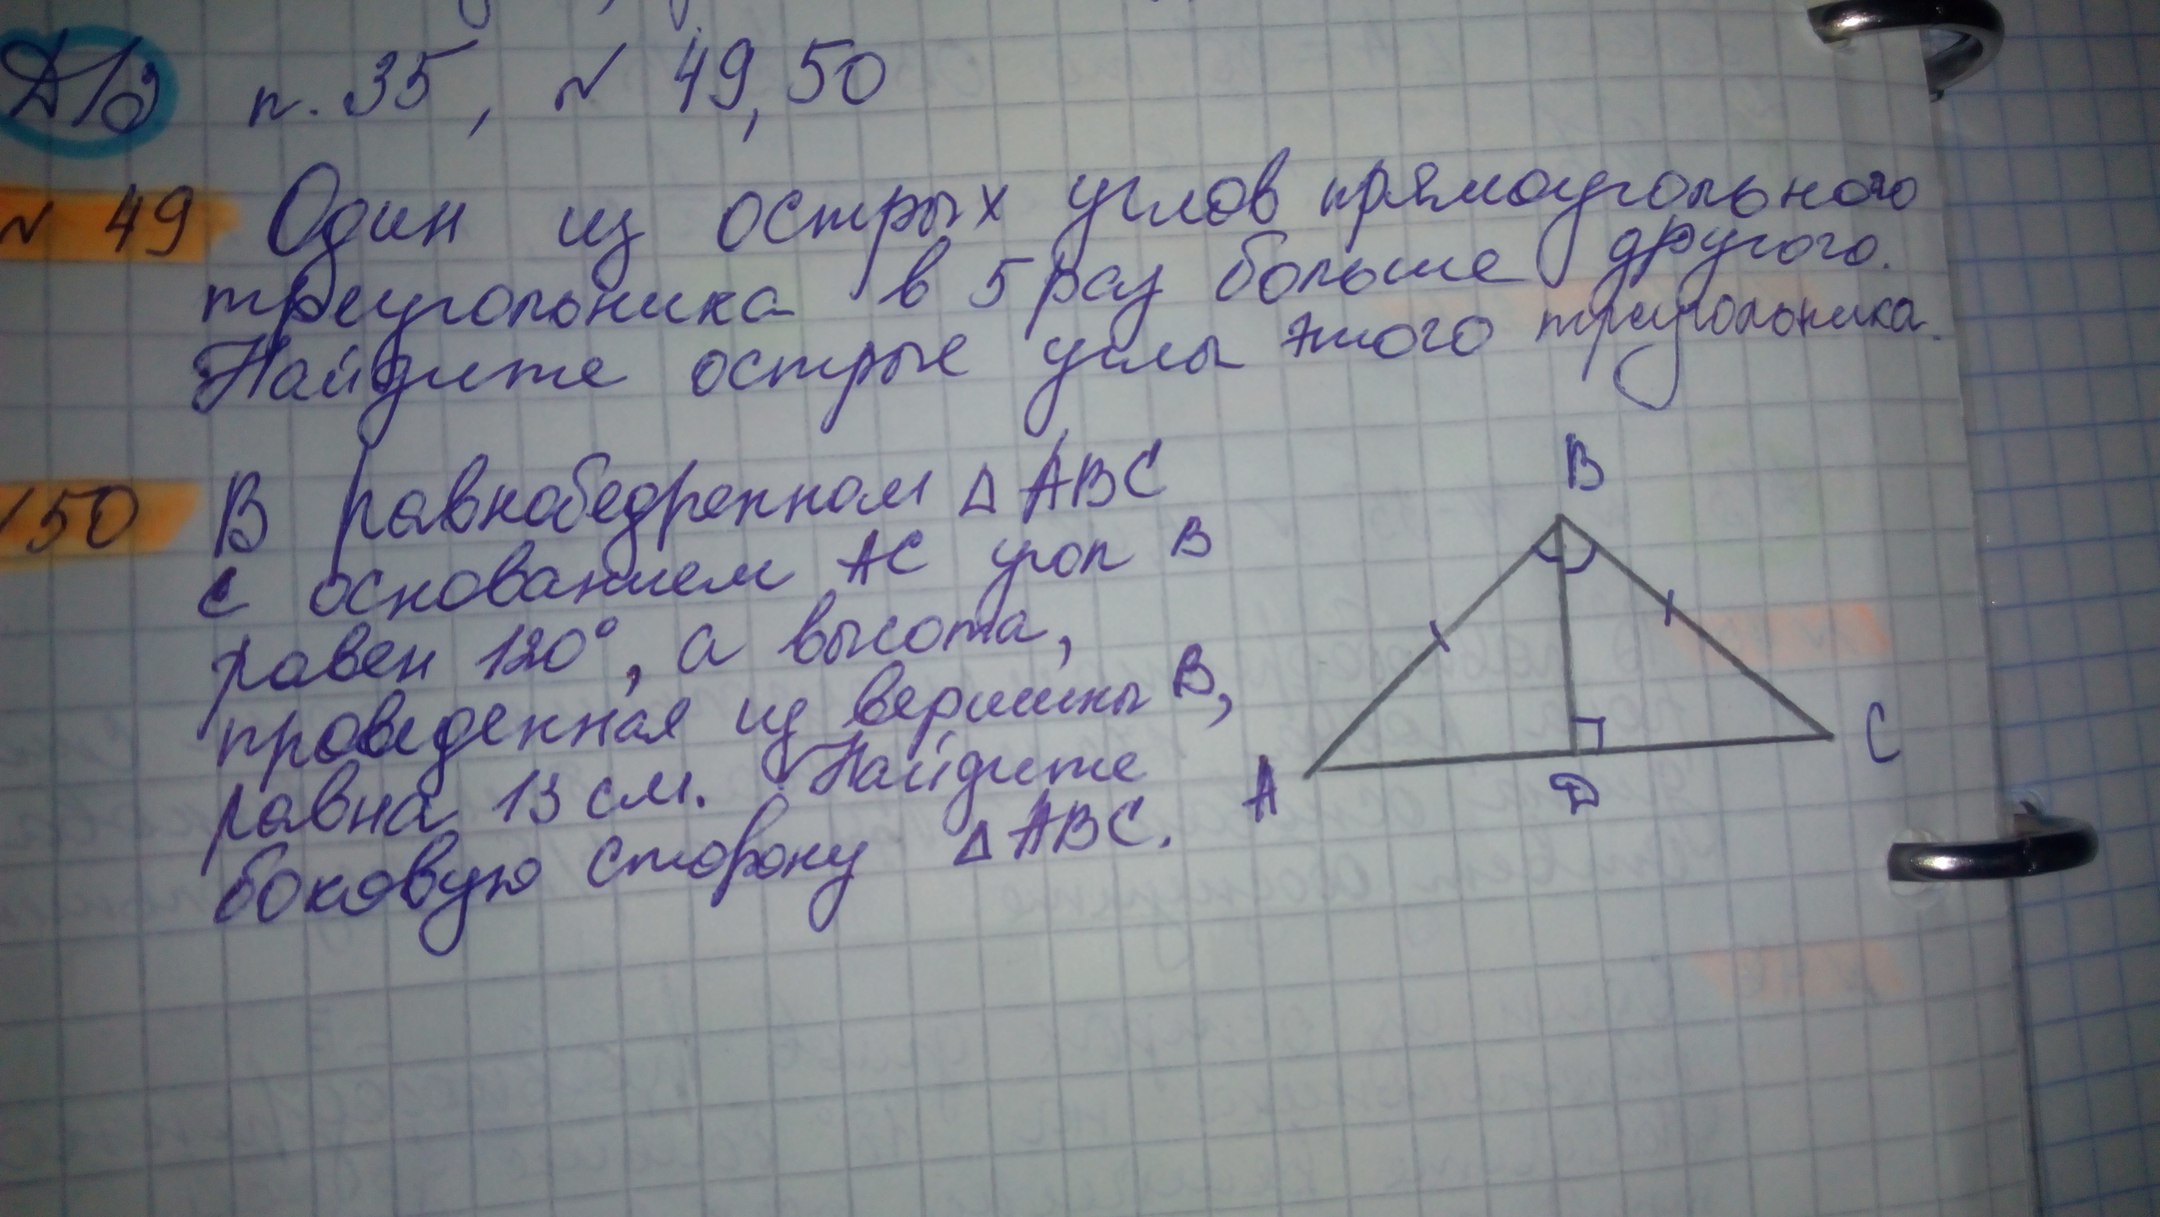 Д/З п. 35, № 49, 50
№ 49 Один из острых углов прямоугольного
треугольника в 5 раз больше другого.
Найдите острые углы этого треугольника.
№ 50 В равнобедренном △ ABC
с основанием AC угол B
равен 120°, а высота,
проведенная из вершины B,
равна 13 см. Найдите
боковую сторону △ ABC.
B
A
D
C